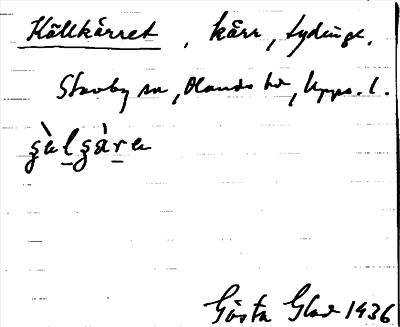 Källkärret, kärr, Lydinge,
Stavby sn, Olands hd, Upps. l.
Gösta Glad 1936